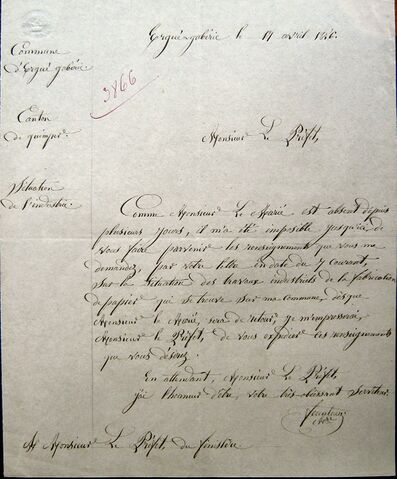 Ergué-gabéric le 14 avril 1846.
Commune
d'Ergué gabéric.
3866
Canton
de quimper
Monsieur Le Préfet,
Situation
de l'industrie.
Comme Monsieur Le Marié est absent depuis
plusieurs jours, il m'a été imposible jusqu'ici de
vous faire parvenir les renseignements que vous me
demandez, par votre lettre en date du 7 Courant,
Sur la Situation des travaux industriels de la fabrication
de papier qui se trouve sur ma Commune, dès que
Monsieur le Marié, sera de retour, je m'empresserai,
Monsieur le Préfet, de vous expédier ces renseignements
que vous désirez.
En attendant, Monsieur Le Préfet,
j'ai l'honneur d'être, votre très obéissant Serviteur.
A Monsieur Le Préfet du finistère.